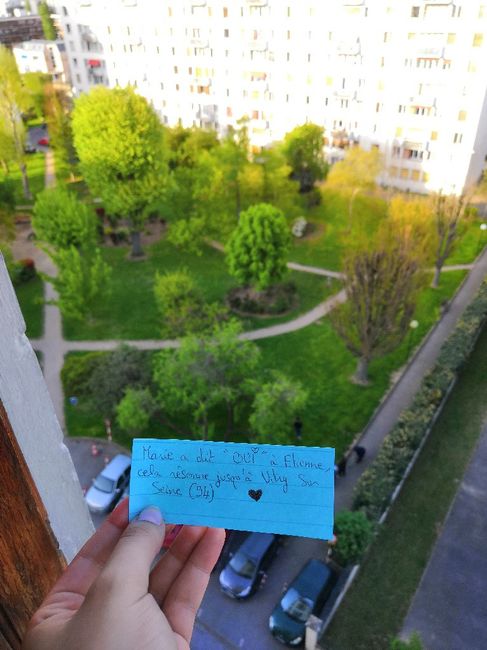 Marie a dit "OUI" à Etienne,
cela résonne jusqu'à Vitry Sur
Seine (94) ♥